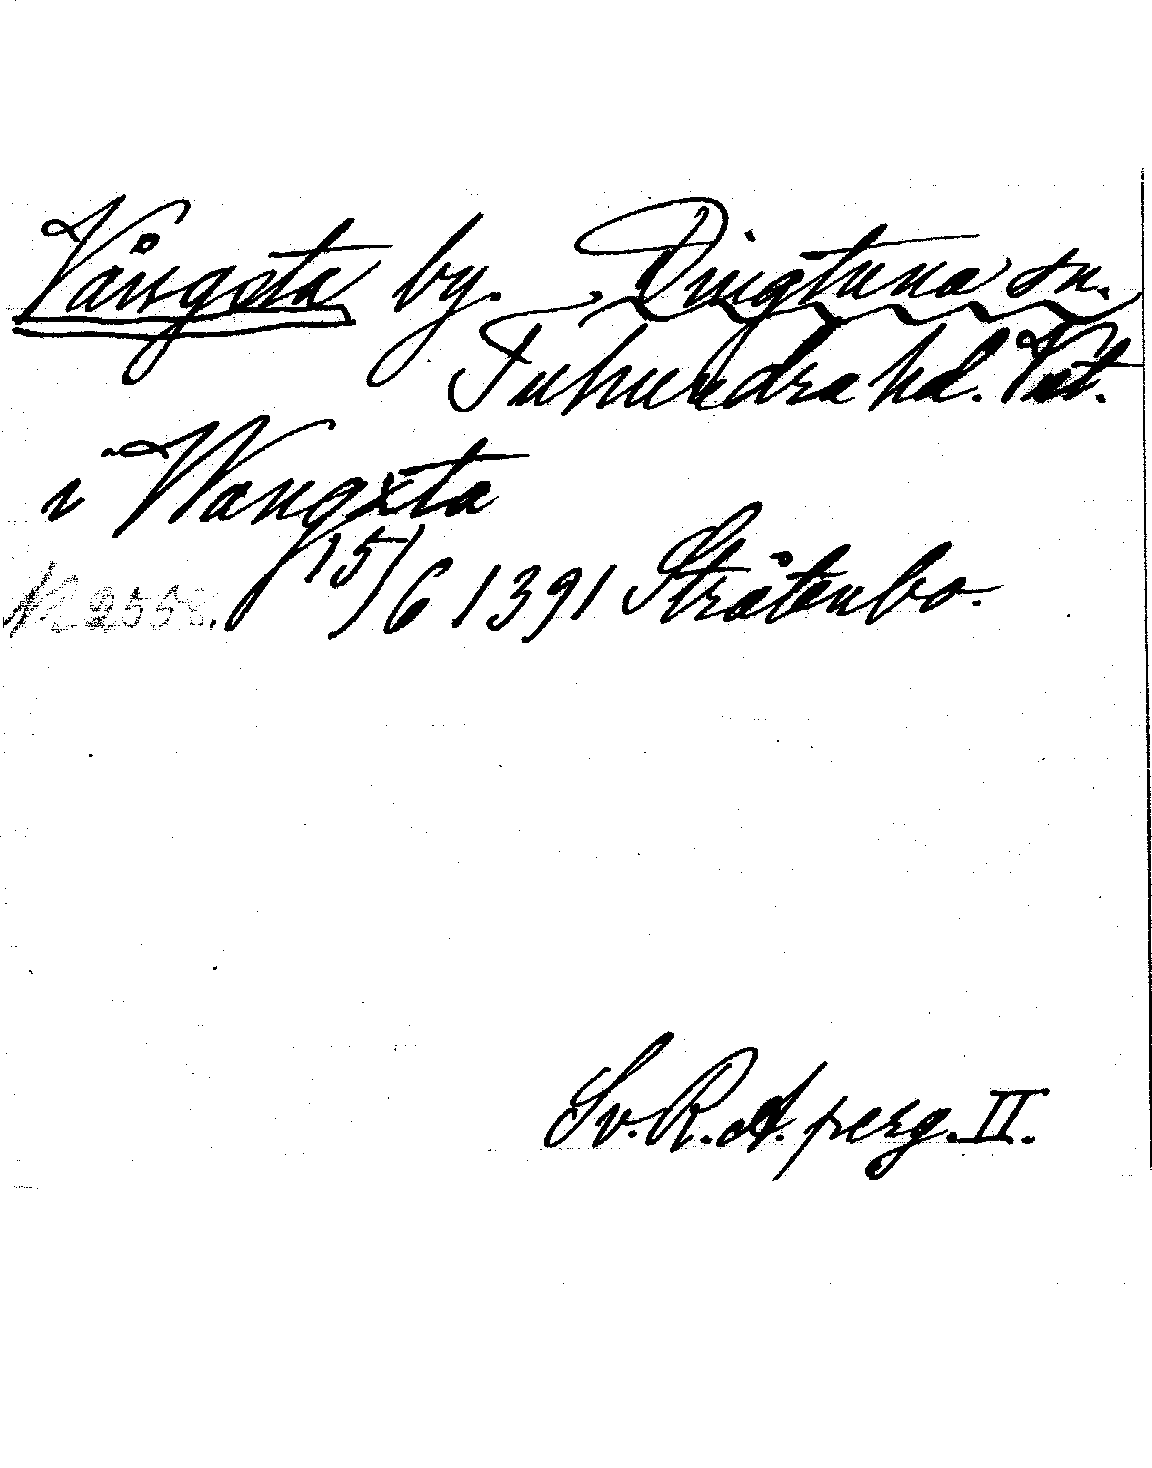 Vångsta by. Dingtuna sn.
Tuhundra hd. Vstm.
i Wangxta
15/6 1391 Stråtenbo.
N 2558.
Sv. R. A. perg. II.